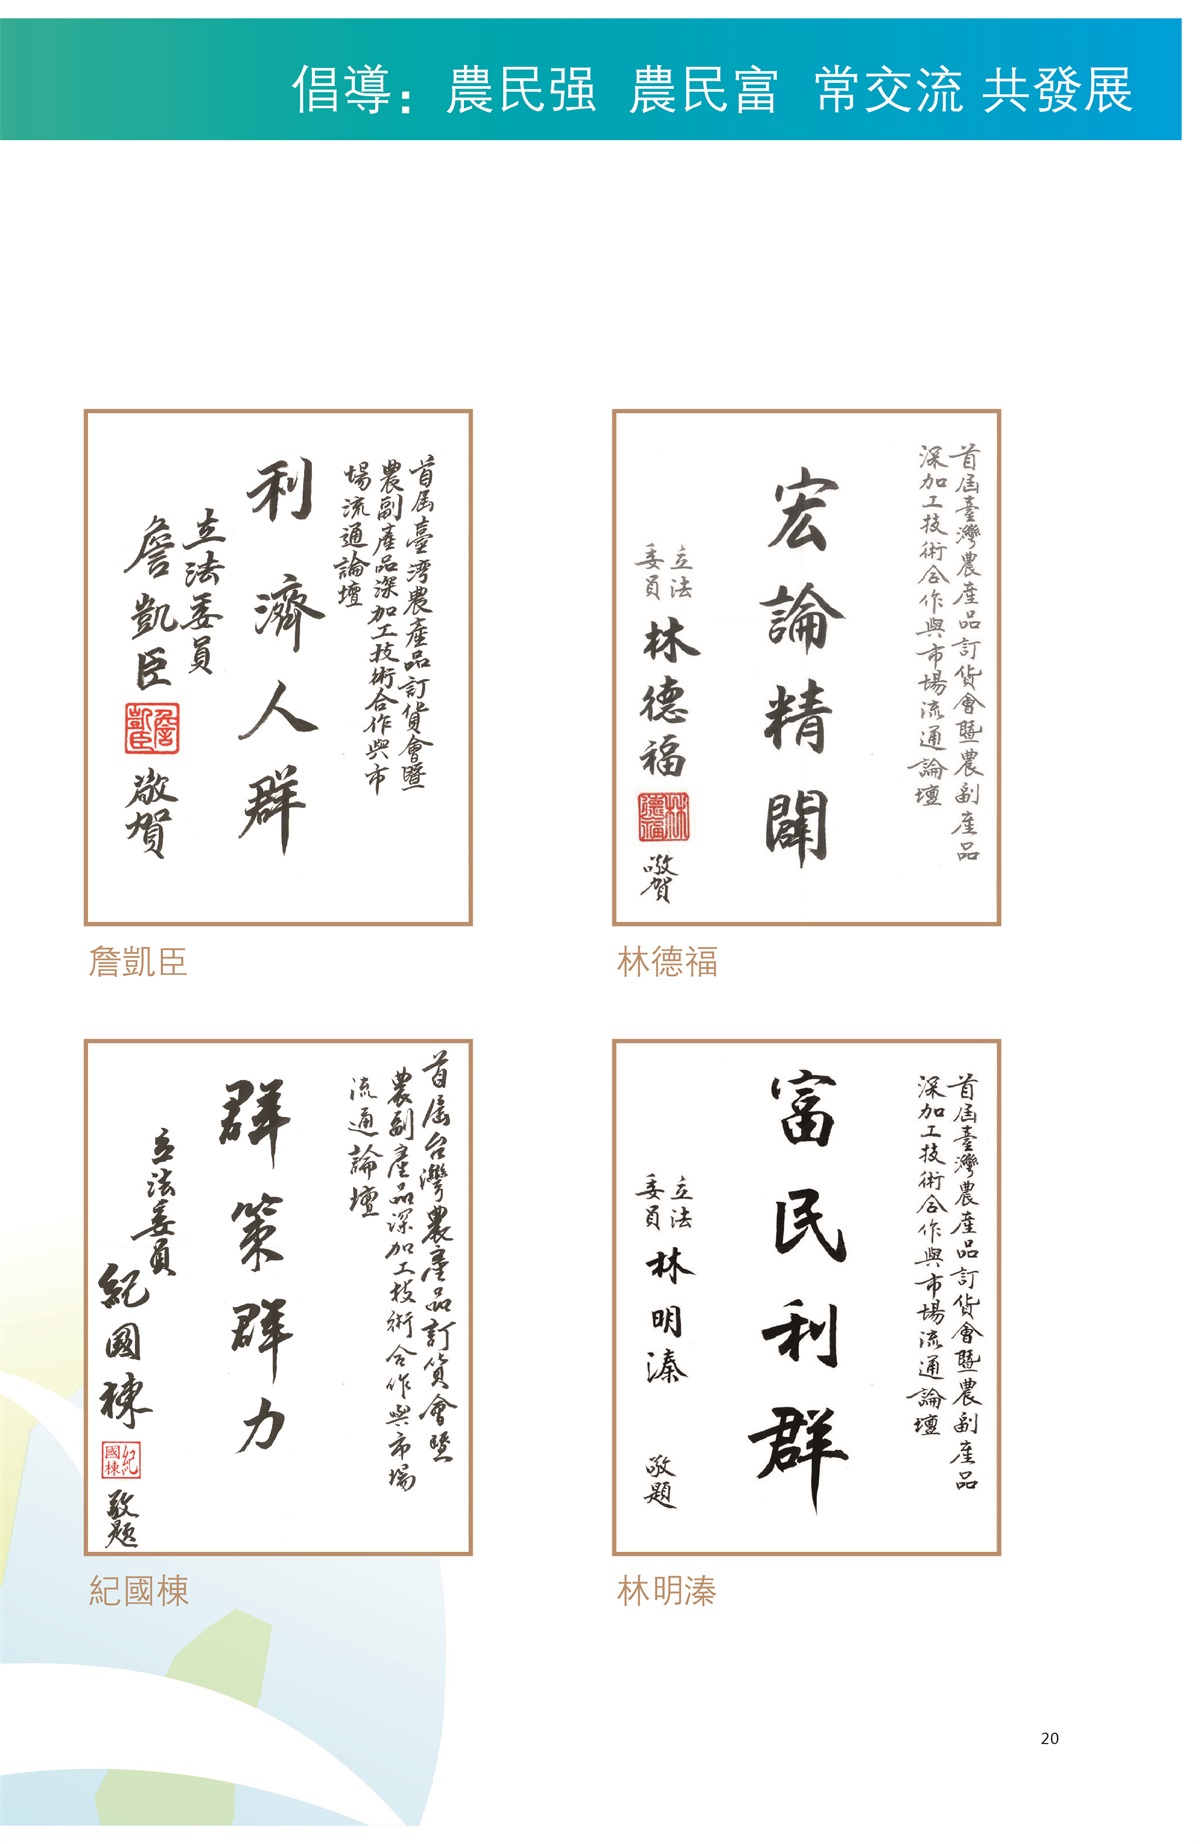 倡導：農民强 農民富 常交流 共發展
首屆臺灣農產品訂貨會暨
農副產品深加工技術合作與市
場流通論壇
利濟人群
立法委員
詹凱臣
詹凱臣
敬賀
詹凱臣
首屆臺灣農產品訂貨會暨農副產品
深加工技術合作與市場流通論壇
宏論精闢
立法
委員
林德福
林德福
敬賀
林德福
首屆台灣農產品訂貨會暨
農副產品深加工技術合作與市場
流通論壇
群策群力
立法委員
紀國棟
紀國棟
敬題
紀國棟
首屆臺灣農產品訂貨會暨農副產品
深加工技術合作與市場流通論壇
富民利群
立法
委員
林明溱
敬題
林明溱
20